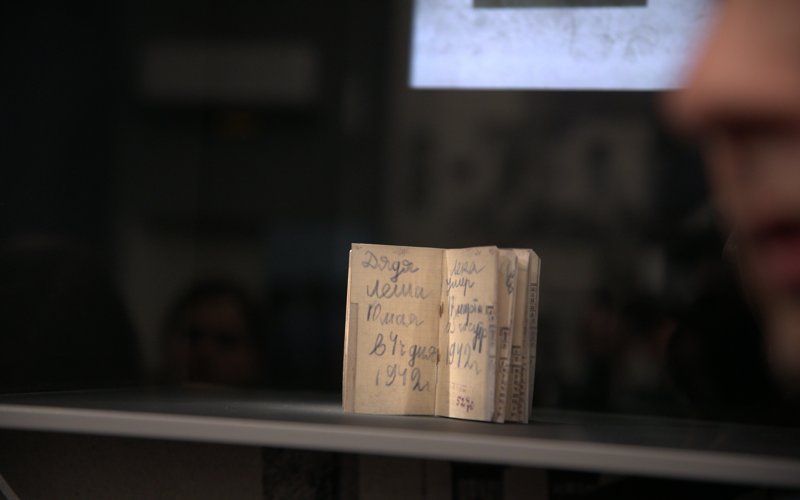 Дядя
Леша
10 мая
в 4 ч дня
1942 г
Лека
умер
17 марта
1942 г